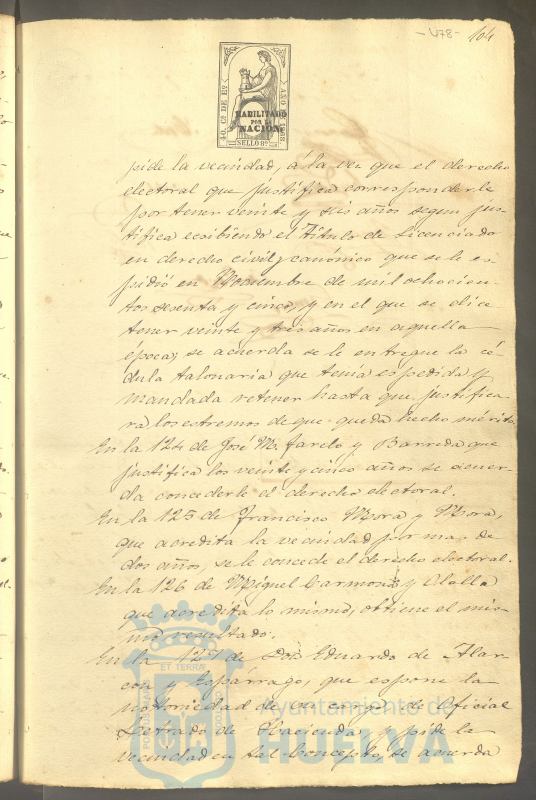 -V78- 104
40. Cs. DE Eo. AÑO 1868
HABILITADO
POR LA
NACION.
SELLO 8º
pide la vecindad, á la vez que el derecho
electoral que justifica corresponderle
por tener veinte y seis años segun jus-
tifica ecsibiendo el Título de Licenciado
en derecho civil y canónico que se le es-
pidió en Noviembre de mil ochocien-
tos sesenta y cinco, y en el que se dice
tener veinte y tres años en aquella
época; se acuerda se le entregue la cé-
dula talonaria que tenia espedida y
mandada retener hasta que justifica-
ra los estremos de que queda hecho mérito.
En la 124 de José M. Farelo y Barreda que
justifica los veinte y cinco años se acuer-
da concederle el derecho electoral.
En la 125 de Francisco Mora y Mora,
que acredita la vecindad por mas de
dos años, se le concede el derecho electoral.
En la 126 de Miguel Carmona y Olalla
que acredita lo mismo, obtiene el mis-
mo resultado.
En la 127 de Don Eduardo de Alar-
con y Esparrago, que espone la
notoriedad de su cargo de Oficial
Letrado de Hacienda, y pide la
vecindad en tal concepto, se acuerda
ET TERRA
Ayuntamiento de
HUELVA